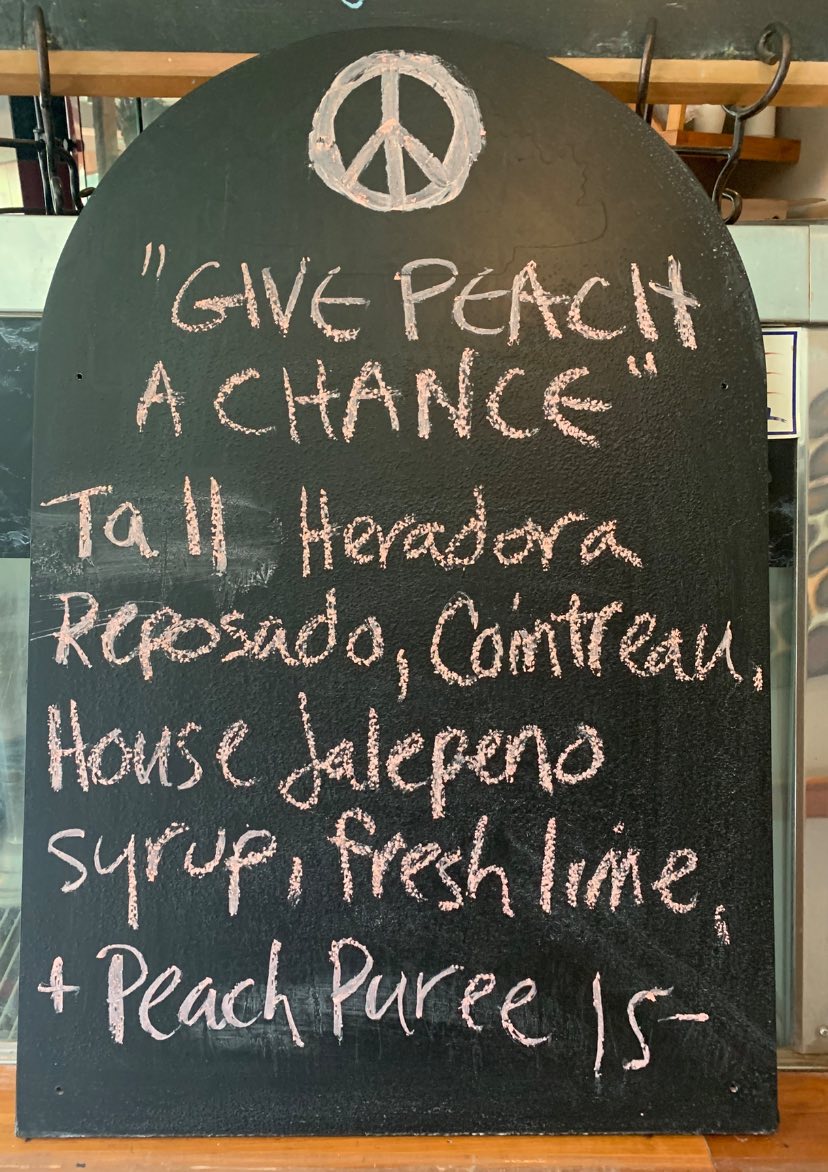 "GIVE PEACH
A CHANCE"
Tall Heradora
Reposado, Cointreau,
House jalepeno
syrup, fresh lime,
+ Peach Puree 15-